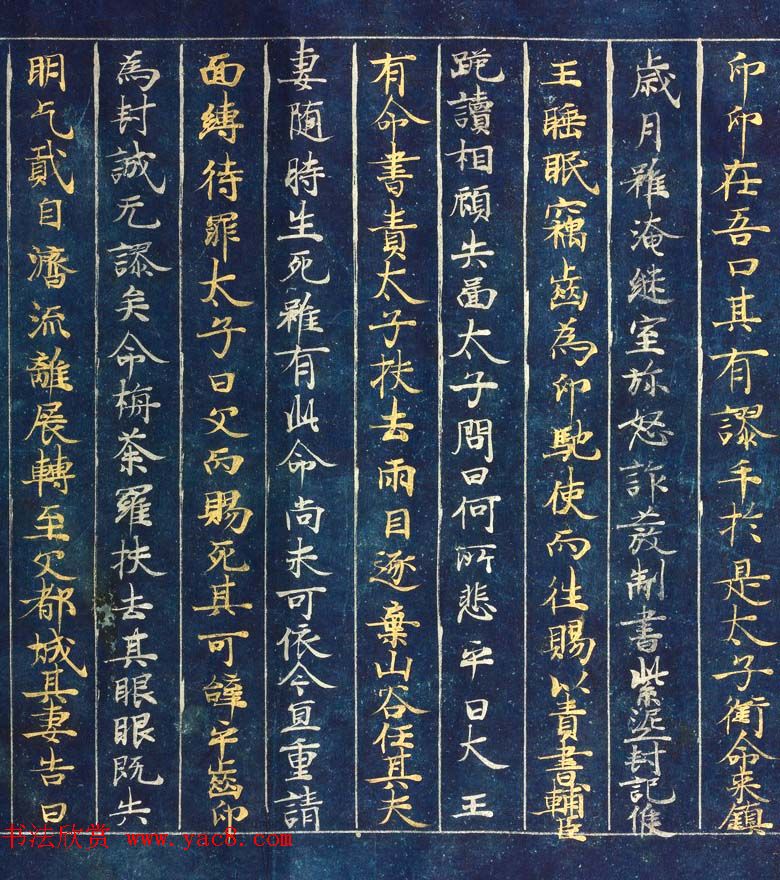 印印在吾口其有謬乎於是太子銜命來鎮
歲月雖淹繼室弥怒詐發制書紫泥封記候
王睡眠竊齒為印馳使而往賜以責書輔臣
跪讀相顧失啚太子問曰何所悲乎曰大王
有命書責太子抉去兩目逐棄山谷任其夫
妻隨時生死雖有此命尚未可依今宜重請
面縛待罪太子曰父而賜死其可辭乎齒印
為封誠无謬矣命栴荼羅抉去其眼眼既失
明乞貣自濟流離展轉至父都城其妻告曰
书法欣赏 www.yac8.com